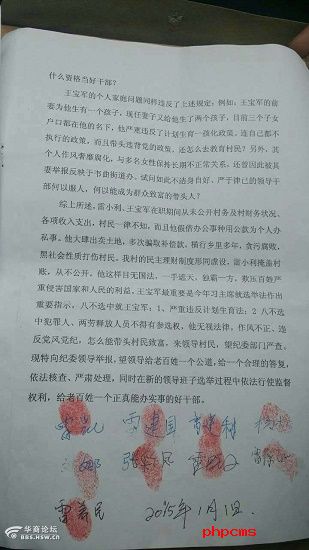 什么资格当好干部？
王宝军的个人家庭问题同样违反了上述规定；例如，王宝军的前
妻为他生有一个孩子，现任妻子又给他生了两个孩子，目前三个子女
户口都在他的名下，他严重违反了计划生育一孩化政策。连自己都不
执行的政策，而且带头违背党的政策，还怎么去教育村民？另外，其
个人作风奢靡腐化，与多名女性保持长期不正常关系，还曾因此被其
妻举报反映于韦曲街道办、试问如此不洁身自好、严于律己的领导干
部何以服人，何以能成为群众致富的带头人？
综上所述，雷小利、王宝军在职期间从未公开村务及村财务状况、
各项收入支出，村民一律不知，而且他假借办公事种用公款为个人办
私事，他大肆出卖土地，多次骗取补偿款，横行乡里多年，贪污腐败，
黑社会性质打伤村民。我村的民主理财制度形同虚设，雷小利掩盖村
账，从不公开。他这样目无国法，一手遮天，独霸一方，欺压百姓严
重侵害国家和人民的利益。王宝军最重要是今年习主席就选举法作出
重要指示，八不选中就王宝军：1、严重违反计划生育法；2 八不选
中犯罪人、两劳释放人员不得有参选权，他无视法律，作风不正、违
反党风党纪，怎么能带头村民致富，来领导村民，望纪委部门严查、
现特向纪委领导举报，望领导给老百姓一个公道，给一个合理的答复，
依法核查、严肃处理，同时在新的领导班子选举过程中依法行使监督
权利，给老百姓一个正真能办实事的好干部。
雷建国
2015年1月1日.
华商论坛
BBS.HSW.CN
phpcms